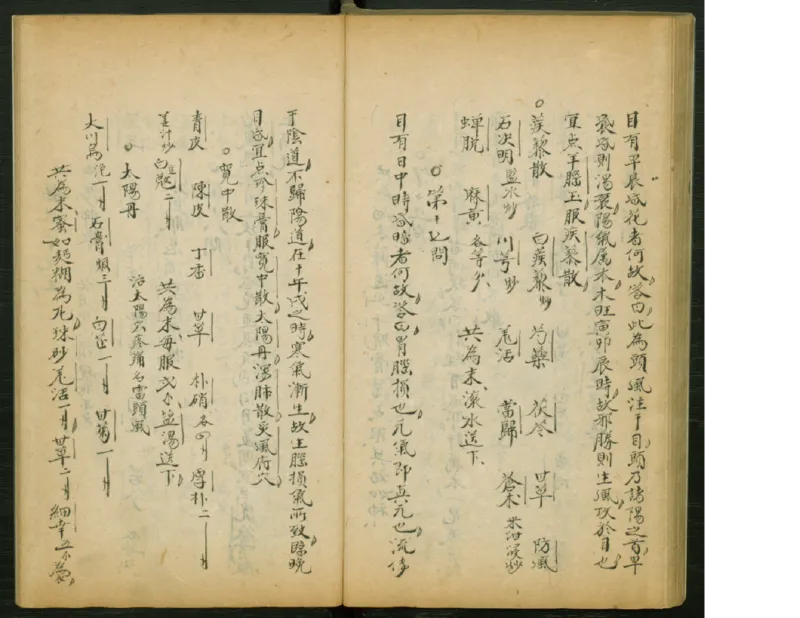 目有早晨昏花者何故答曰此為頭風注于目頭乃諸陽之首早
晨昏則濁襲陽氣属木木旺寅卯辰時故邪勝則生風攻於目也
宜点羊腦玉服蒺藜散
○蒺藜散 白蒺藜炒 芍藥 茯苓 甘草 防風
石决明塩水炒 川芎炒 羌活 當歸 蒼术米泔浸炒
蝉脱 麻黄各等分 共為末滚水送下
○第十七問
目有日中時昏暗者何故答曰胃腦損也元氣即真元也流傳
于陰道不歸陽道在于午戌之時寒氣漸生故生腦損氣所致臨晚
目昏宜点珍珠膏服寛中散太陽丹瀉肺散灸風府穴
○寛中散
青皮 陳皮 丁香 甘草 朴硝各四 厚朴二
姜汁炒 白豆蔲二 共為末每服 塩湯送下
○太陽丹 治太陽穴疼痛名雷頭風
大川烏 一 石膏 三 白芷一 甘菊一
共為末蜜如麺糊為丸硃砂 羌活一 甘草二 細辛五